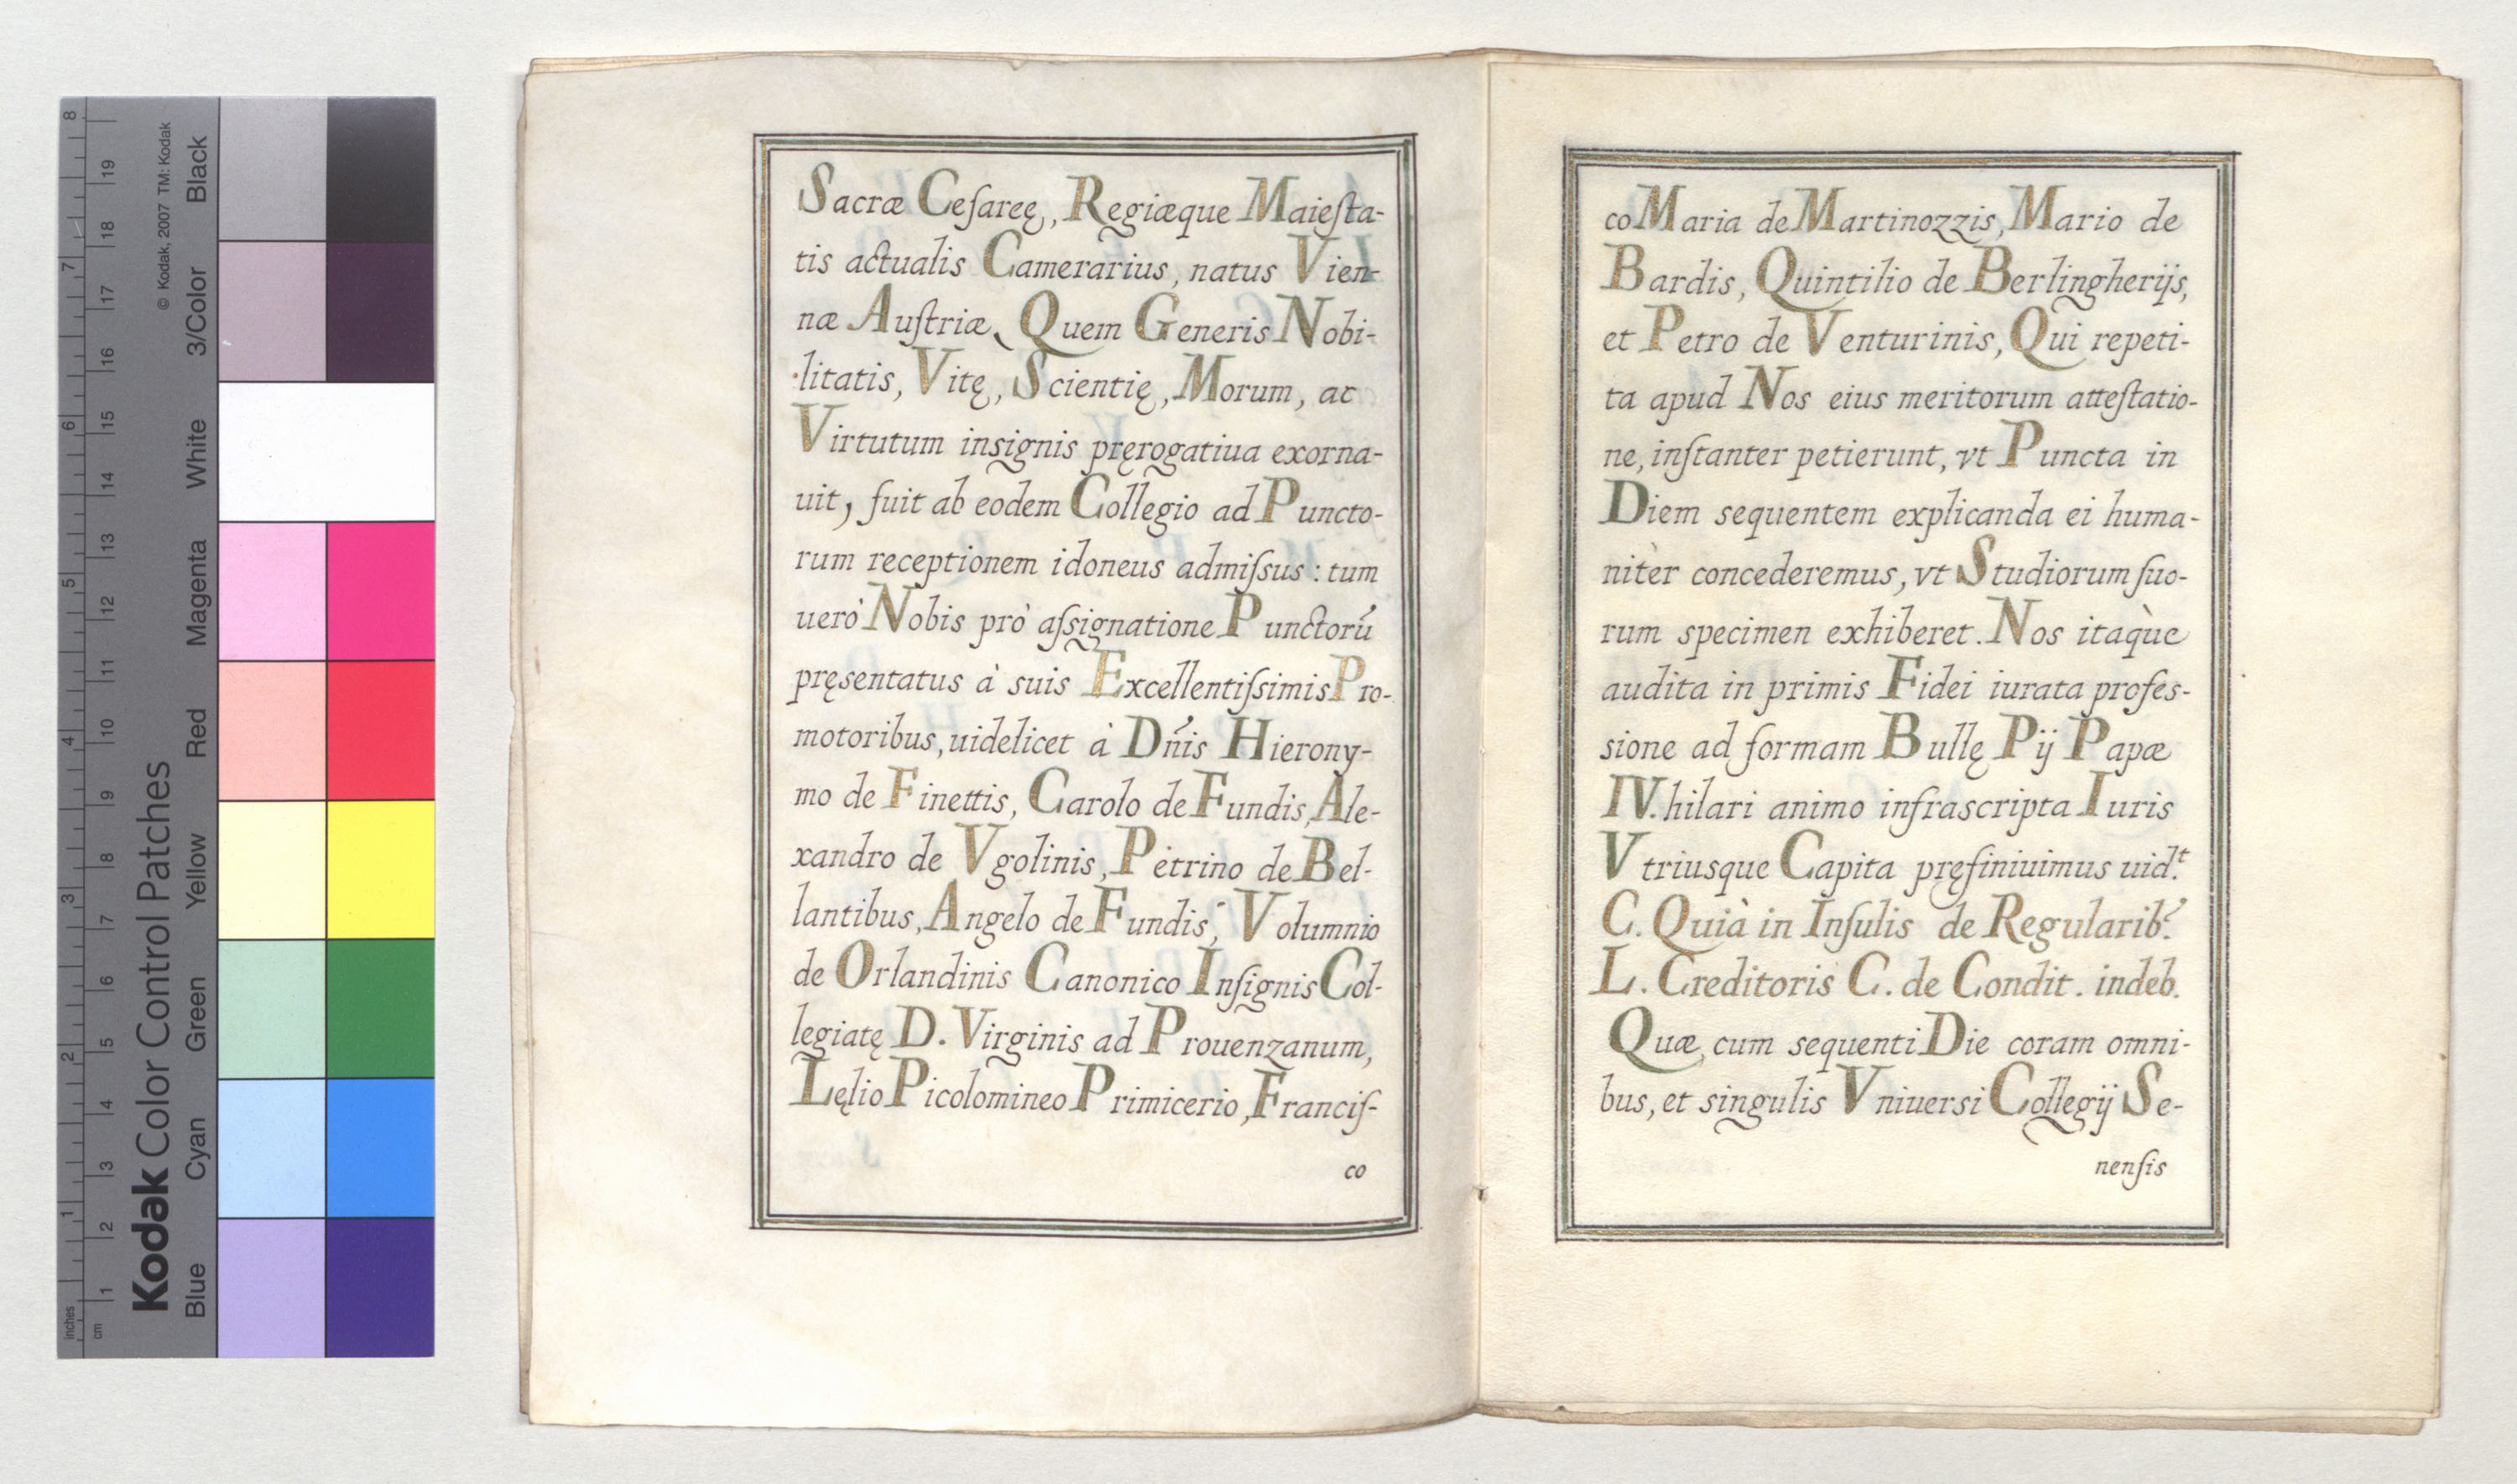 Kodak Color Control Patches
© Kodak, 2007 TM: Kodak
Blue Cyan Green Yellow Red Magenta White 3/Color Black
inches 1 2 3 4 5 6 7 8
cm 1 2 3 4 5 6 7 8 9 10 11 12 13 14 15 16 17 18 19
Sacræ Ceſareę, Regiæque Maieſta-
tis actualis Camerarius, natus Vien-
næ Auſtriæ, Quem Generis Nobi-
litatis, Vitę, Scientię, Morum, ac
Virtutum insignis pręrogatiua exorna-
uit, fuit ab eodem Collegio ad Puncto-
rum receptionem idoneus admiſsus: tum
uerò Nobis prò aſsignatione Punctorú
pręsentatus à suis Excellentiſsimis Pro-
motoribus, uidelicet à Dńis Hierony-
mo de Finettis, Carolo de Fundis, Ale-
xandro de Vgolinis, Petrino de Bel-
lantibus, Angelo de Fundis, Volumnio
de Orlandinis Canonico Inſignis Col-
legiatę D. Virginis ad Prouenzanum,
Lęlio Picolomineo Primicerio, Franciſ-
co
co Maria de Martinozzis, Mario de
Bardis, Quintilio de Berlingherijs,
et Petro de Venturinis, Qui repeti-
ta apud Nos eius meritorum atteſtatio-
ne, inſtanter petierunt, vt Puncta in
Diem sequentem explicanda ei huma-
nitèr concederemus, vt Studiorum ſuo-
rum specimen exhiberet. Nos itaque
audita in primis Fidei iurata profes-
sione ad formam Bullę Pij Papæ
IV. hilari animo infrascripta Iuris
Vtriusque Capita pręfiniuimus uid.t
C. Quià in Inſulis de Regularib.
L. Creditoris C. de Condit. indeb.
Quæ, cum sequenti Die coram omni-
bus, et singulis Vniuersi Collegij Se-
nenſis